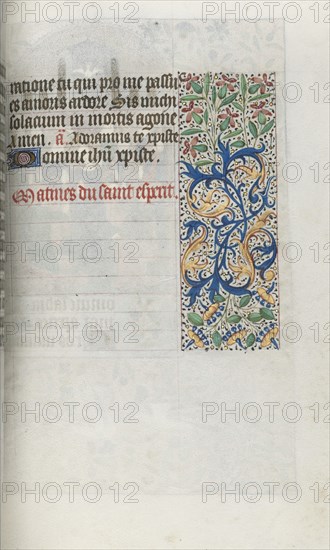 PHOTO12 PHOTO12 PHOTO12
mtione tu qui pro me passus
es amoris ardore Sis michi
solacium in mortis agone
amen. a. Adoramus te xpiste
Domine ihu xpiste.
Matines du saint esperit.
PHOTO12 PHOTO12
PHOTO12 PHOTO12 PHOTO12
PHOTO12 PHOTO12
PHOTO12 PHOTO12 PHOTO12
PHOTO12 PHOTO12